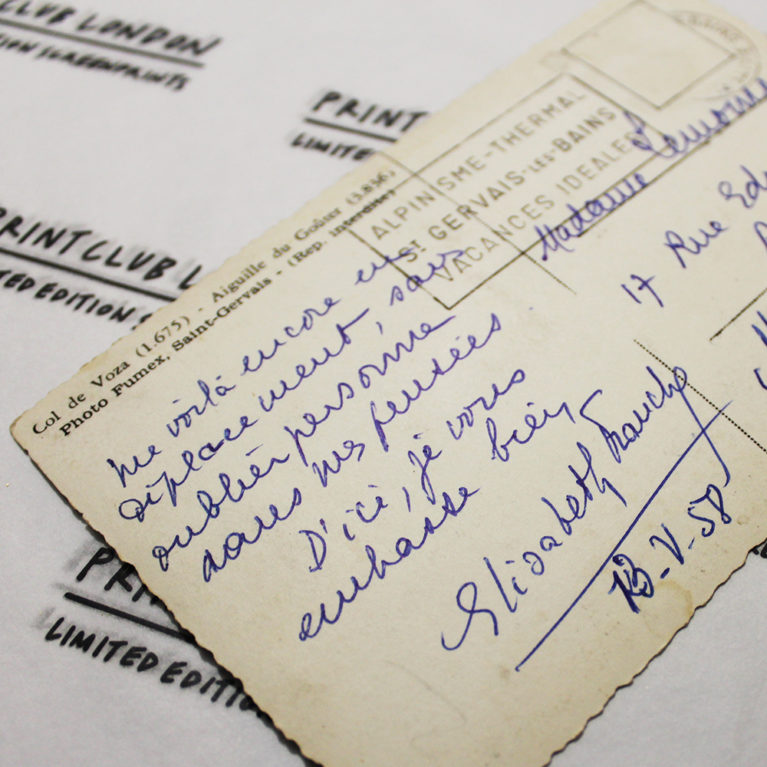 CLUB LONDON
ION SCREENPRINTS
PRINT
LIMITE
PRINT CLUB L
TED EDITION S
PRI
LIMITED EDITIO
Col de Voza (1.675) - Aiguille du Goûter (3.836)
Photo Fumex, Saint-Gervais - (Rep. interdite)
ALPINISME-THERMAL
ST GERVAIS-LES-BAINS
VACANCES IDEALES
Me voilà encore en
déplacement, sans
oublier personne
dans mes pensées
D'ici, je vous
embrasse bien,
Elisabeth
13-V-58
Madame
17 Rue